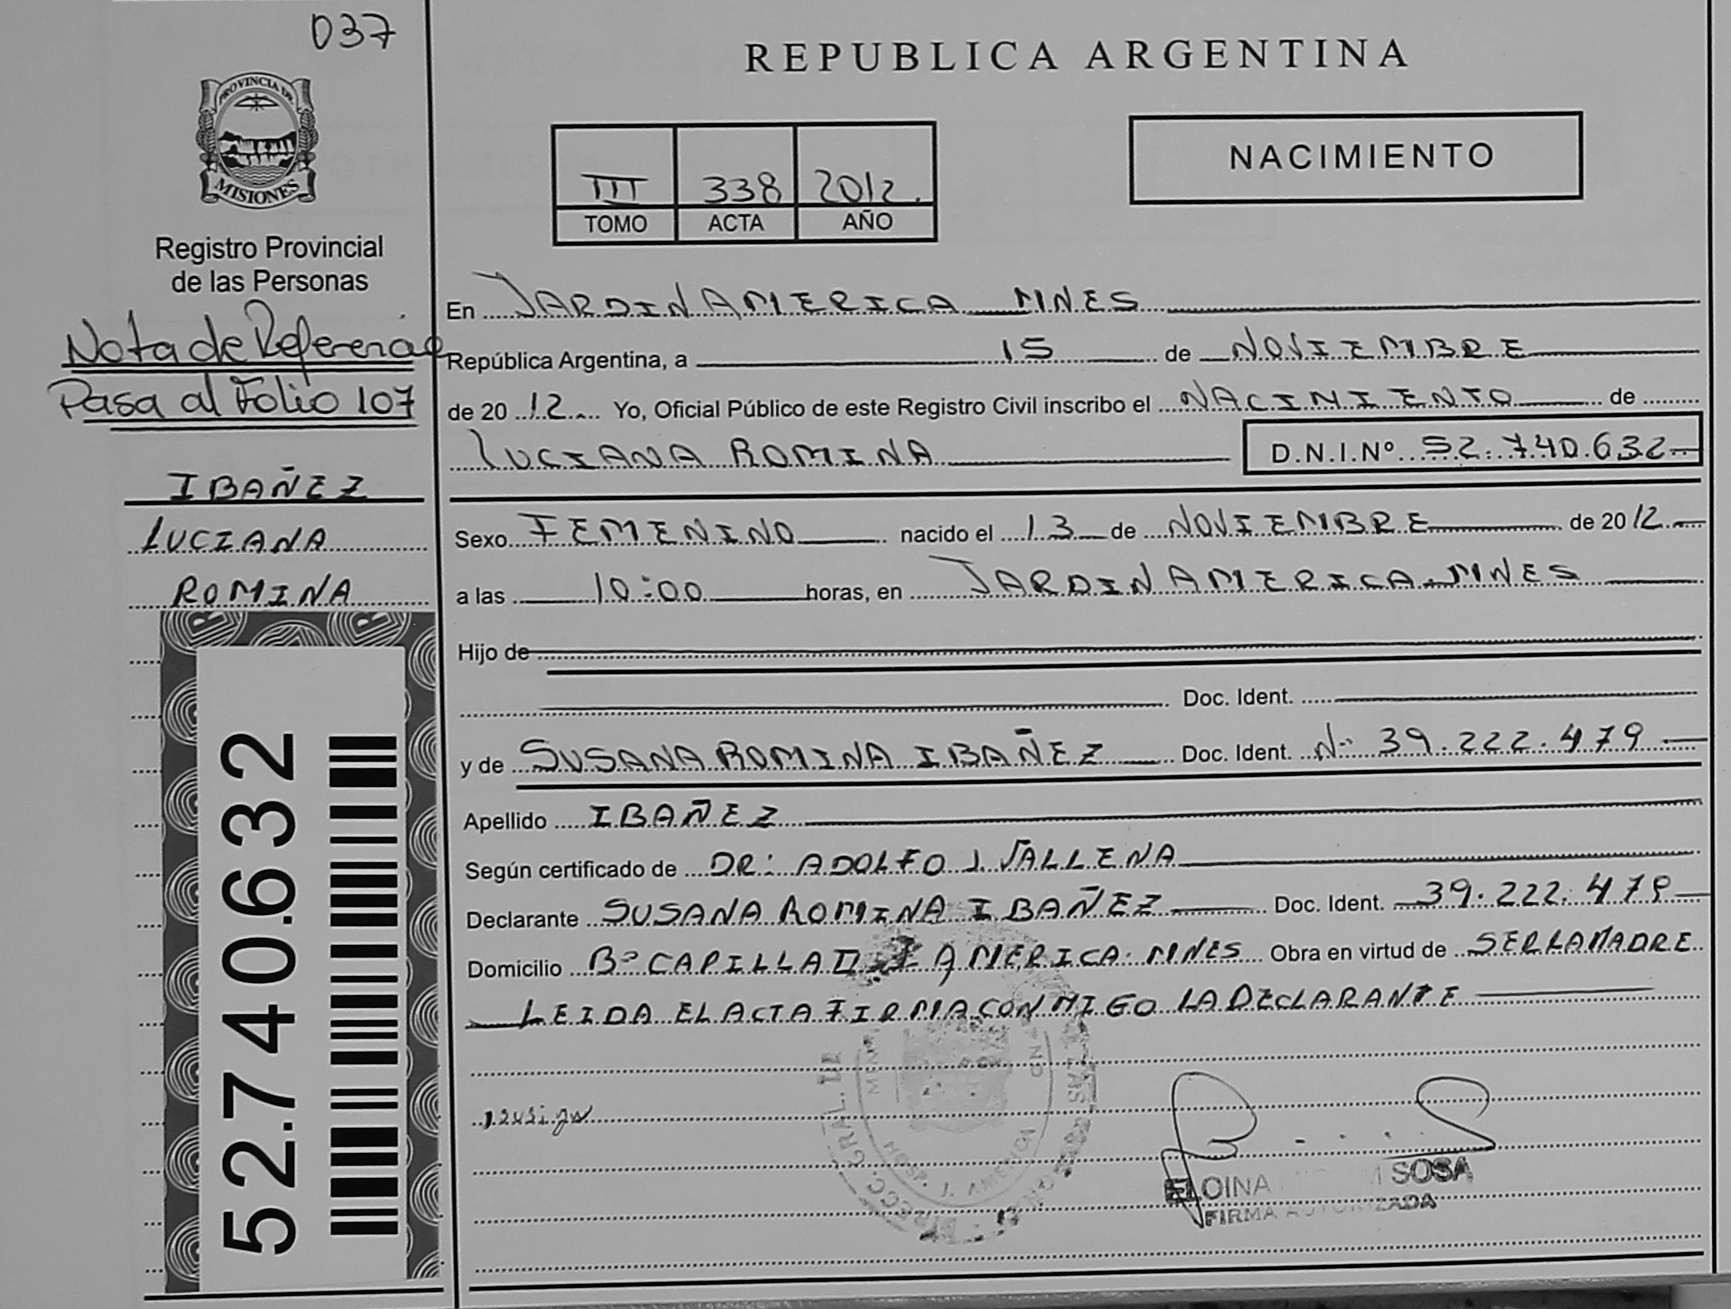 037
PROVINCIA DE
MISIONES
Registro Provincial
de las Personas
Nota de Referencia
Pasa al Folio 107
IBAÑEZ
LUCIANA
ROMINA
52.740.632
REPUBLICA ARGENTINA
III 338 2012.
TOMO ACTA AÑO
NACIMIENTO
En JARDIN AMERICA MNES
República Argentina, a 15 de NOVIEMBRE
de 2012 Yo, Oficial Público de este Registro Civil inscribo el NACIMIENTO de
LUCIANA ROMINA D.N.I.Nº 52.740.632
Sexo FEMENINO nacido el 13 de NOVIEMBRE de 2012
a las 10:00 horas, en JARDIN AMERICA MNES
Hijo de
Doc. Ident.
y de SUSANA ROMINA IBAÑEZ Doc. Ident. Nº 39.222.479
Apellido IBAÑEZ
Según certificado de DR: ADOLFO J. VALLENA
Declarante SUSANA ROMINA IBAÑEZ Doc. Ident. 39.222.479
Domicilio Bº CAPILLA AMERICA. MNES Obra en virtud de SER LA MADRE
LEIDA EL ACTA FIRMA CONMIGO LA DECLARANTE
SOSA
FIRMA AUTORIZADA